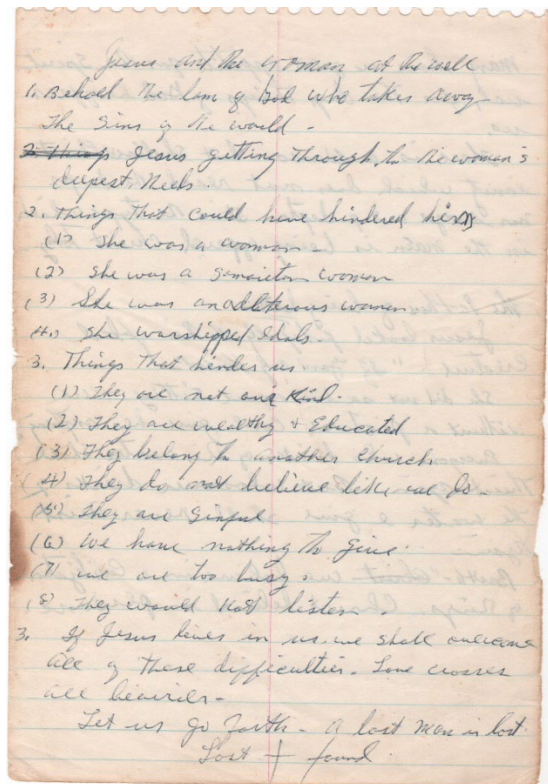 Jesus and the Woman at the well
1. Behold the lam of God who takes away
the Sins of the world -
2. Things Jesus getting through to the woman's
deepest needs.
2. Things that could have hindered him
(1) She was a woman -
(2) She was a Samaritan woman
(3) She was an adulterous woman
(4.) She worshipped Idols.
3. Things that hinder us
(1) They are not our Kind.
(2) They are wealthy + Educated
(3) They belong to another Church
(4) They do not believe like we do -
(5) They are Sinful
(6) We have nothing to give.
(7) we are too busy.
(8) They would Not listen.
3. If Jesus lives in us. we shall overcome
all of these difficulties. Love crosses
all
Let us go forth - A lost Man is lost
Lost + found.